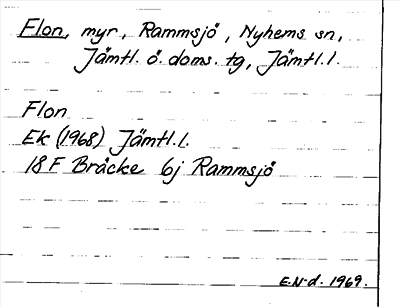 Flon, myr, Rammsjö, Nyhems sn,
Jämtl. ö. doms. tg, Jämtl. l.
Flon
Ek (1968) Jämtl. l.
18 F Bräcke 6j Rammsjö
E.N-d. 1969.